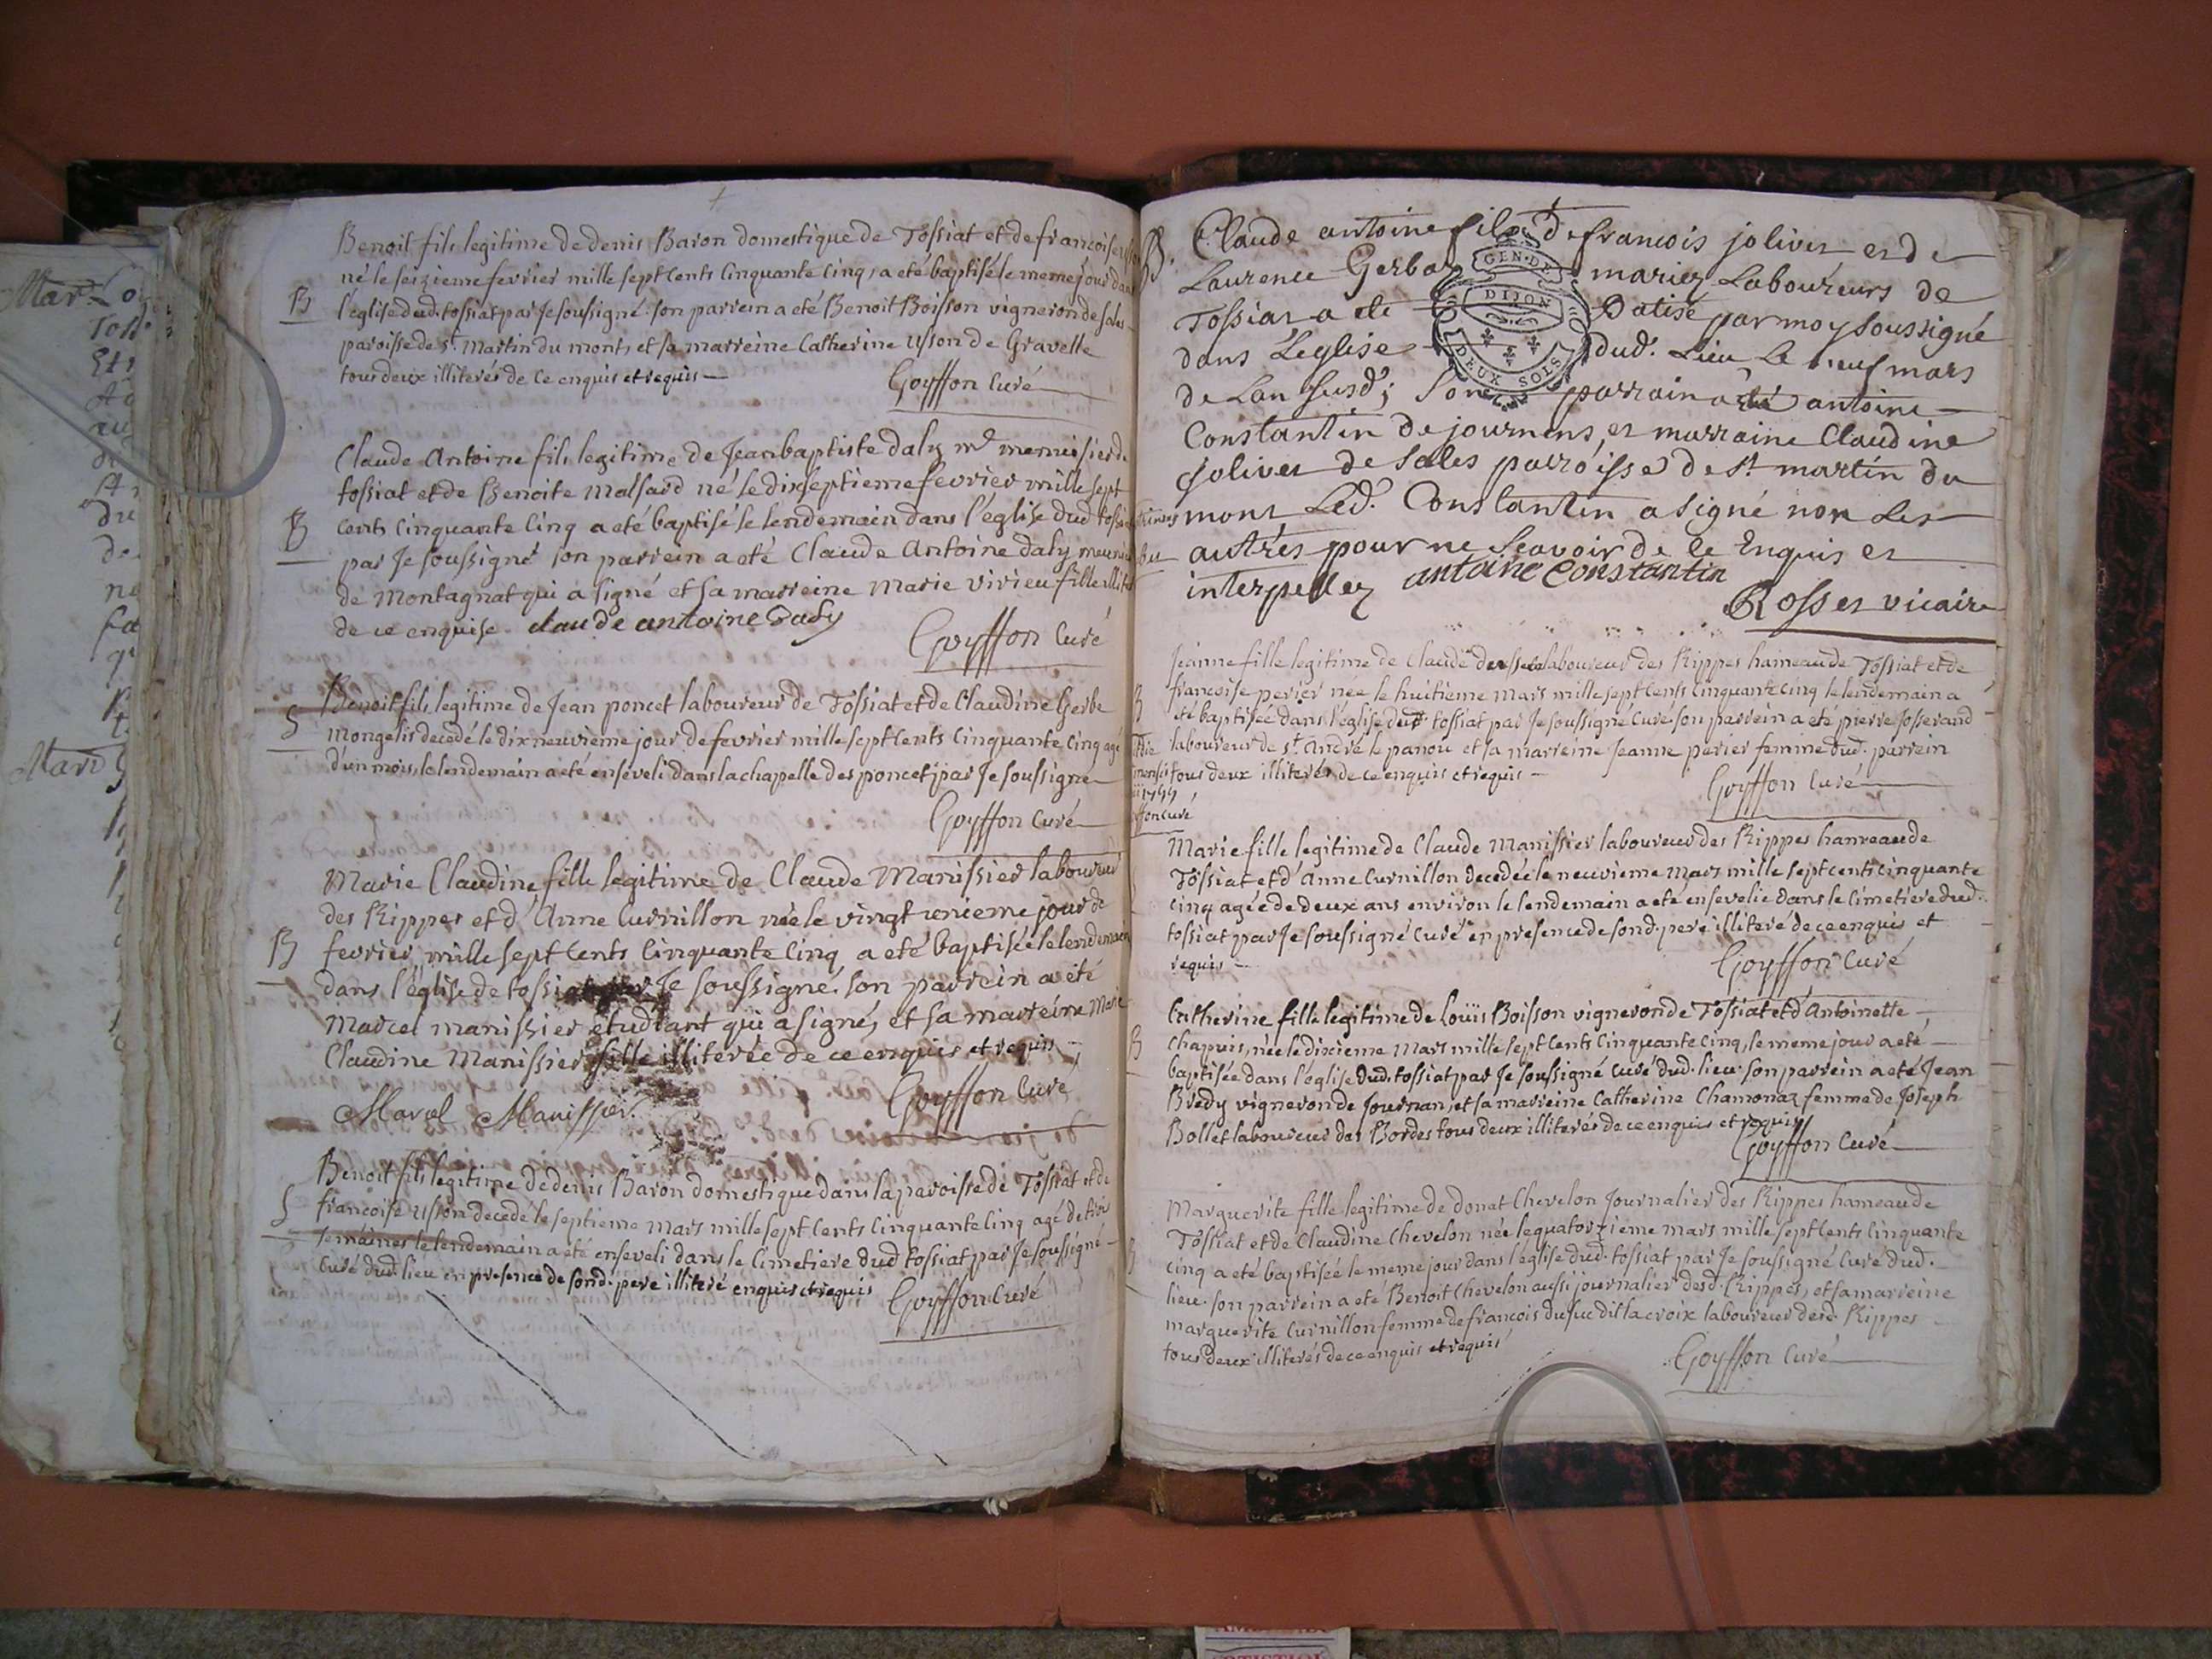 Mar
Benoit fils legitime de denis Baron domestique de Tossiat et de francoise
né le seizieme fevrier mille sept cents cinquante cinq, a eté baptisé le meme jour dans
B
l'église dud. tossiat par Je soussigné. son parrein a eté Benoit Boisson vigneron de sales
paroisse de st. Martin du mont, et sa marreine Catherine usson de Gravelle
tous deux illiterés de ce enquis et requis
Goyffon Curé
Claude Antoine fils legitime de Jean baptiste daly md menuisier de
tossiat et de Benoite Malsard né le dixseptieme fevrier mille sept
B
cents cinquante cinq a eté baptisé le lendemain dans l'église dud tossiat
par Je soussigné son parrein a eté Claude Antoine daly meunier
de Montagnat qui a signé et sa marreine Marie vivieu fille
de ce enquise. claude antoine Daly
Goyffon Curé
Benoit fils legitime de Jean poncet laboureur de Tossiat et de Claudine Gerbe
S
mongelis decedé le dix neuvieme jour de fevrier mille sept cents cinquante cinq agé
d'un mois, le lendemain a eté enseveli dans la chapelle des poncet par Je soussigné
Goyffon Curé
Marie Claudine fille legitime de Claude Manissier laboureur
des Rippes et d'Anne Curnillon née le vingt unieme jour de
B
fevrier mille sept cents cinquante cinq a eté baptisée le lendemain
dans l'église de tossiat par Je soussigné. son parrein a eté
Marcel manissier étudiant qui a signé, et sa marreine Marie
Claudine Manissier fille illiterée de ce enquis et requis
Goyffon Curé
Marcel Manissier
Benoit fils legitime de denis Baron domestique dans la paroisse de Tossiat et de
S
francoise usson decedé le septieme mars mille sept cents cinquante cinq agé de trois
semaines le lendemain a eté enseveli dans le cimetiere dud tossiat par Je soussigné
Curé dud. lieu en presence de sond. pere illiteré enquis et requis
Goyffon Curé
B.
Claude antoine fils de francois jolivet et de
Laurence Gerbaz mariez Laboureurs de
Tossiat a eté Batisé par moy soussigné
dans L'eglise dud. Lieu le neuf mars
de Lan susd; Son parrain a été antoine
Constantin de journans, et marraine Claudine
jolivet de Sales parroisse de st martin du
mont Led. Constantin a signé non Les
autres pour ne sçavoir de ce Enquis et
interpellez antoine Constantin
Rosset vicaire
GEN. DE
DIJON
DEUX SOLS
Jeanne fille legitime de Claude laboureur des Rippes hameau de Tossiat et de
B
francoise perier née le huitieme mars mille sept cents cinquante cinq le lendemain a
eté baptisée dans l'église dud. tossiat par Je soussigné Curé. son parrein a eté pierre Josserand
laboureur de st. André le panou et sa marreine Jeanne perier femme dud. parrein
tous deux illiterés de ce enquis et requis
Goyffon Curé
Marie fille legitime de Claude Manissier laboureur des Rippes hameau de
Tossiat et d'Anne Curnillon decedée le neuvieme Mars mille sept cents cinquante
cinq agée de deux ans environ le lendemain a eté ensevelie dans le cimetiere dud.
tossiat par Je soussigné Curé en presence de sond. pere illiteré de ce enquis et
requis
Goyffon Curé
Catherine fille legitime de Loüis Boisson vigneron de Tossiat et d'Antoinette
B
Chapuis, née le dixieme Mars mille sept cents cinquante cinq, le meme jour a eté
baptisée dans l'église dud. tossiat par Je soussigné curé dud. lieu. son parrein a eté Jean
Bredy vigneron de Journan, et sa marreine Catherine Chamonaz femme de Joseph
Bollet laboureur des Bordes tous deux illiterés de ce enquis et requis
Goyffon Curé
Marguerite fille legitime de donat Chevelon Journalier des Rippes hameau de
Tossiat et de Claudine Chevelon née le quatorzieme mars mille sept cents cinquante
B
cinq a eté baptisée le meme jour dans l'église dud. tossiat par Je soussigné Curé dud.
lieu. son parrein a eté Benoit Chevelon aussi journalier desd. Rippes, et sa marreine
marguerite Curnillon femme de francois dufuc dit la croix laboureur desd. Rippes
tous deux illiterés de ce enquis et requis
Goyffon Curé